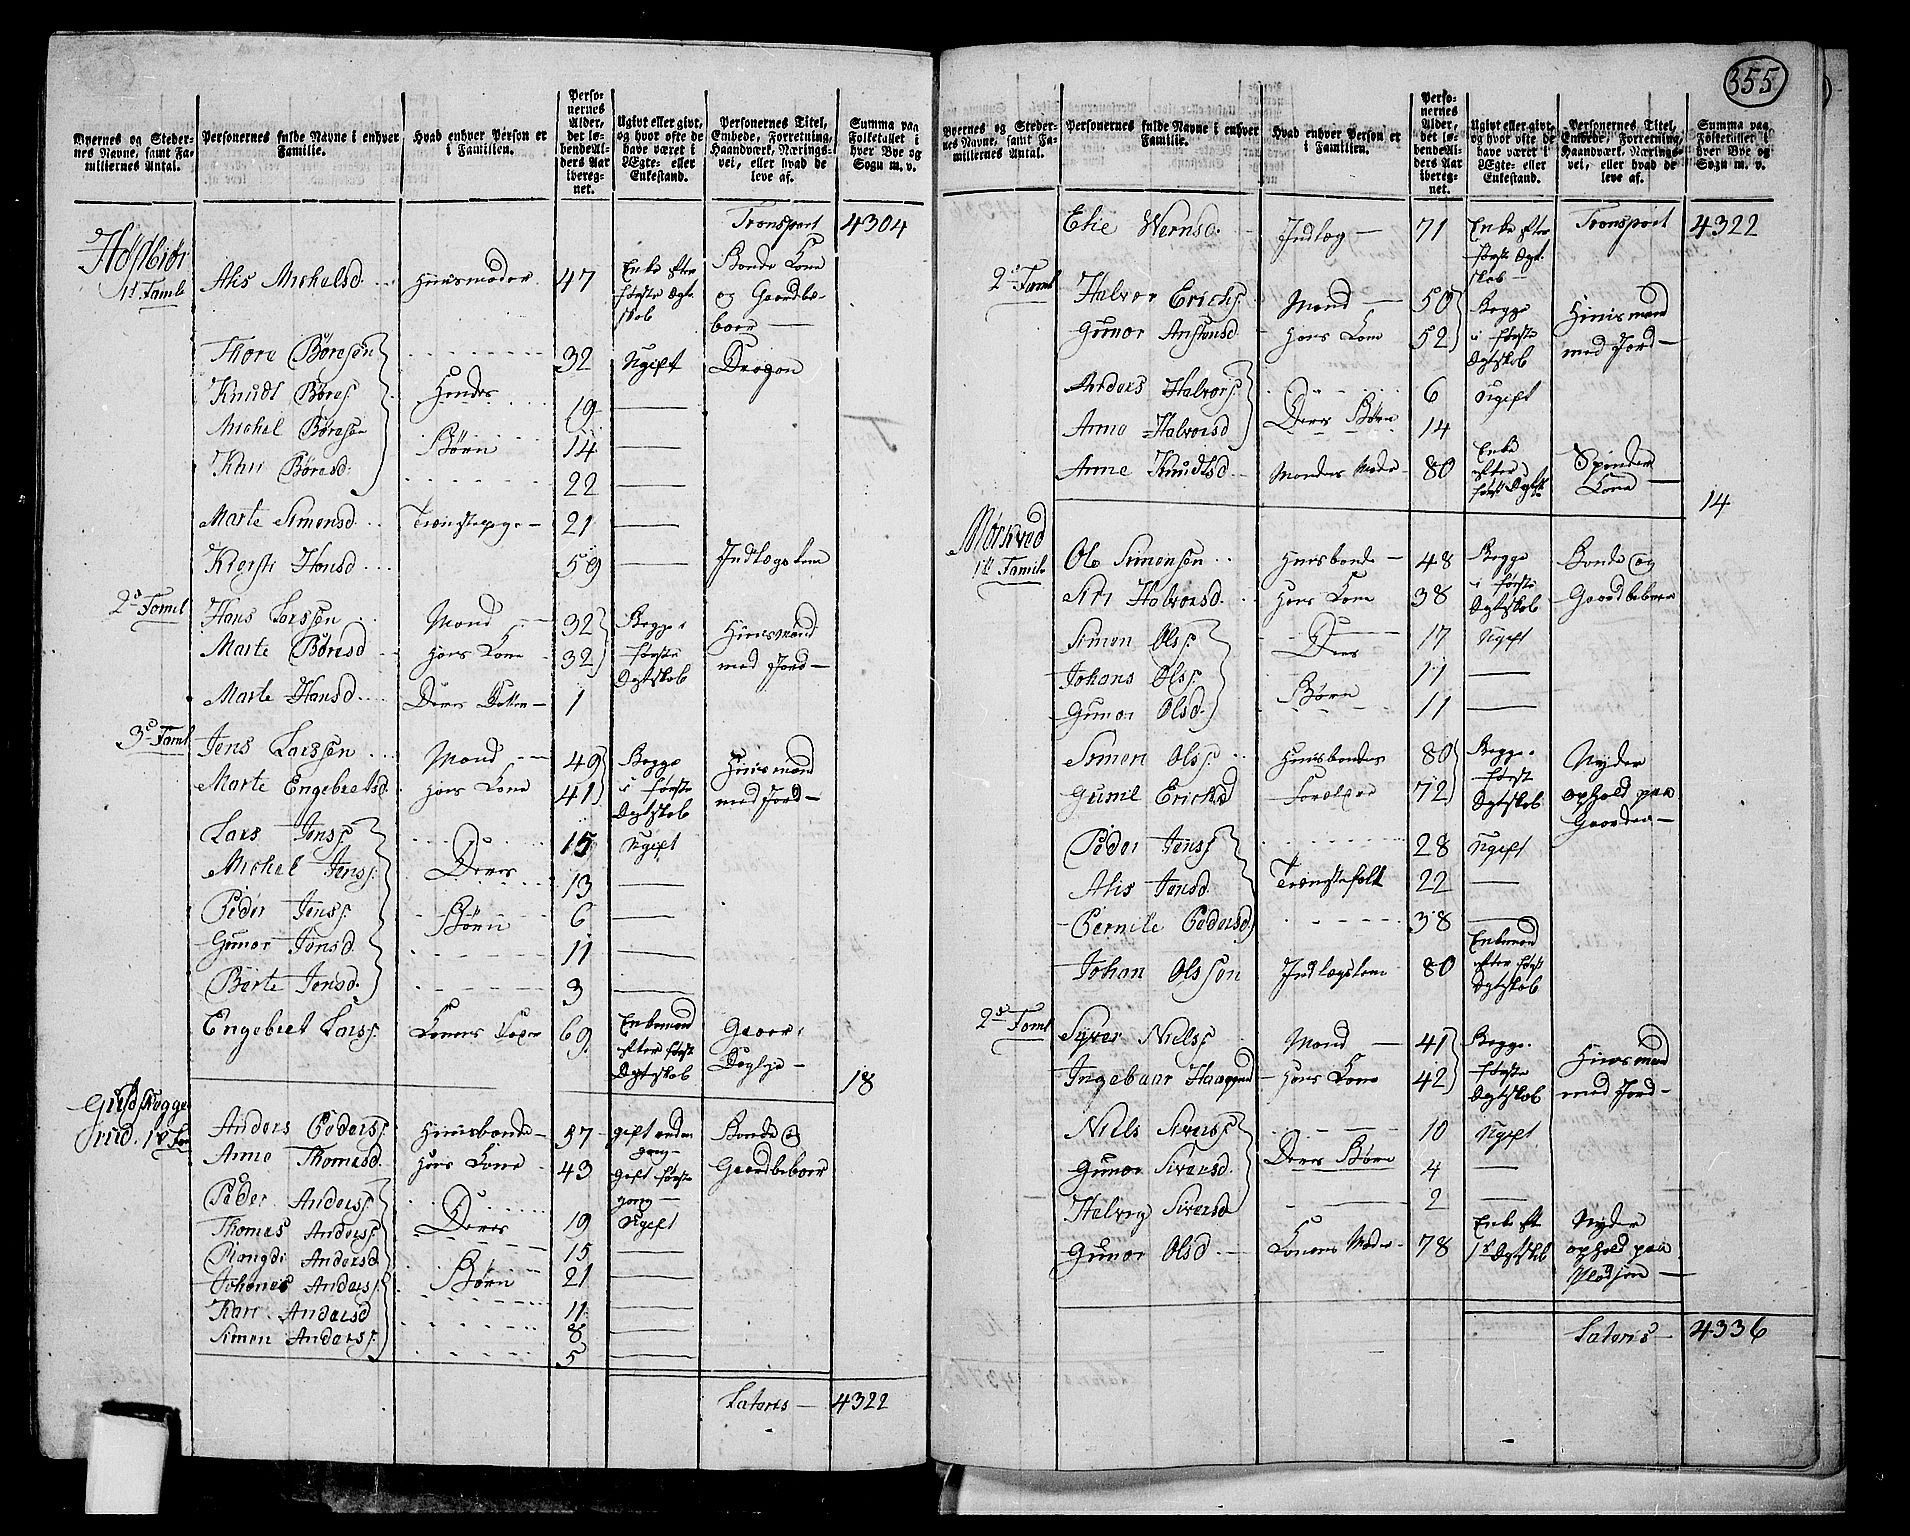 355
Byernes og Steder-
nes Navne, samt Fa-
miliernes Antal.
Personernes fulde Navne i enhver
Familie.
Hvad enhver Person er
i Familien.
Perso-
nernes
Alder,
det lø-
bende Al-
ders Aar
iberegnet.
Ugivt eller givt,
og hvor ofte de
have været i
Ægte- eller
Enkestand.
Personernes Titel,
Embede, Forretning,
Haandværk, Nærings-
vei, eller hvad de
leve af.
Summa paa
Folketallet i
hver Bye og
Sogn m. v.
Transport 4304
1st Famil Alis Michelsd. Huusmoder 47 Enke efter første Ægteskab Bonde Kone og Gaardbeboer
Thore Børesen 32 Ugift Dragon
Knudt Børes. Hendes 19 —
Michel Børesen Børn 14 —
Kari Børesd. 22 —
Marte Simensd. Tienstepige 21 —
Kiersti Hansd. 59 — Indlægskone
2d Famil Hans Larssen Mand 32 Begge i første Ægteskab Huusmand med Jord
Marte Børesd. Hans Kone 32
Marte Hansd. Deres Datter 1
3d Famil Jens Larssen Mand 49 Begge i første Ægteskab Huusmand med Jord
Marte Engebretsd. Hans Kone 41
Lars Jenss. 15 Ugift
Michel Jenss. Deres 13 —
Peder Jenss. Børn 6 —
Gunor Jensd. 11 —
Berte Jensd. 3 —
Engebret Larss. Konens Fader 69 Enkemand efter første Ægteskab
18
1st Fam Anders Peders. Huusbonde 57 gift anden gang Bonde og Gaardbeboer
Anne Thomasd. Hans Kone 43 Gift første gang
Peder Anders. 19 Ugift
Thomas Anders. Deres 15 —
Mangdi Andersd. 21 —
Johanes Anders. Børn 11 —
Kari Andersd. 8 —
Simen Anders. 5 —
Lateris 4322
Byernes og Steder-
nes Navne, samt Fa-
miliernes Antal.
Personernes fulde Navne i enhver
Familie.
Hvad enhver Person er
i Familien.
Perso-
nernes
Alder,
det lø-
bende Al-
ders Aar
iberegnet.
Ugivt eller givt,
og hvor ofte de
have været i
Ægte- eller
Enkestand.
Personernes Titel,
Embede, Forretning,
Haandværk, Nærings-
vei, eller hvad de
leve af.
Summa paa
Folketallet i
hver Bye og
Sogn m. v.
Elie Wernsd. Indlæg 71 Enke efter første Ægteskab Transport 4322
2d Faml Halvor Erichs. Mand 50 Begge i første Ægteskab Huusmand med Jord
Gunor Anstensd Hans Kone 52
Anders Halvors. 6 Ugift
Anne Halvorsd Deres Børn 14
Anne Knudtsd. Mandens Moder 80 Enke efter første Ægtesk. Spinder Kone
14
Mørkved
1st Famil Ole Simensen Huusbonde 48 Begge i første Ægteskab Bonde og Gaardbeboer
Siri Halvorsd. Hans Kone 38
Simen Olss. Deres 17 Ugift
Johans Olss. 11 —
Gunor Olsd. Børn 11 —
Simen Olss. Huusbondens 80 Begge første Ægteskab Nyder ophold paa Gaarden
Gunil Ericksd Forældre 72
Peder Jenss. 28 Ugift
Alis Jensd. Tienstefolk 22 —
Pernile Pedersd. 38 —
Johan Olssen Indlægskone 80 Enkemand efter først Ægteskab
2d Faml Syver Nielss. Mand 41 Begge første Ægteskab Huusmand med Jord
Ingebaar Haagensd Hans Kone 42
Niels Siverss. 10 Ugift
Gunor Siversd. Deres Børn 4 —
Halvog Siversd 2 —
Gunor Olsd. Konens Moder 78 Enke eft 1st Ægteskab Nyder ophold paa
Lateris 4336